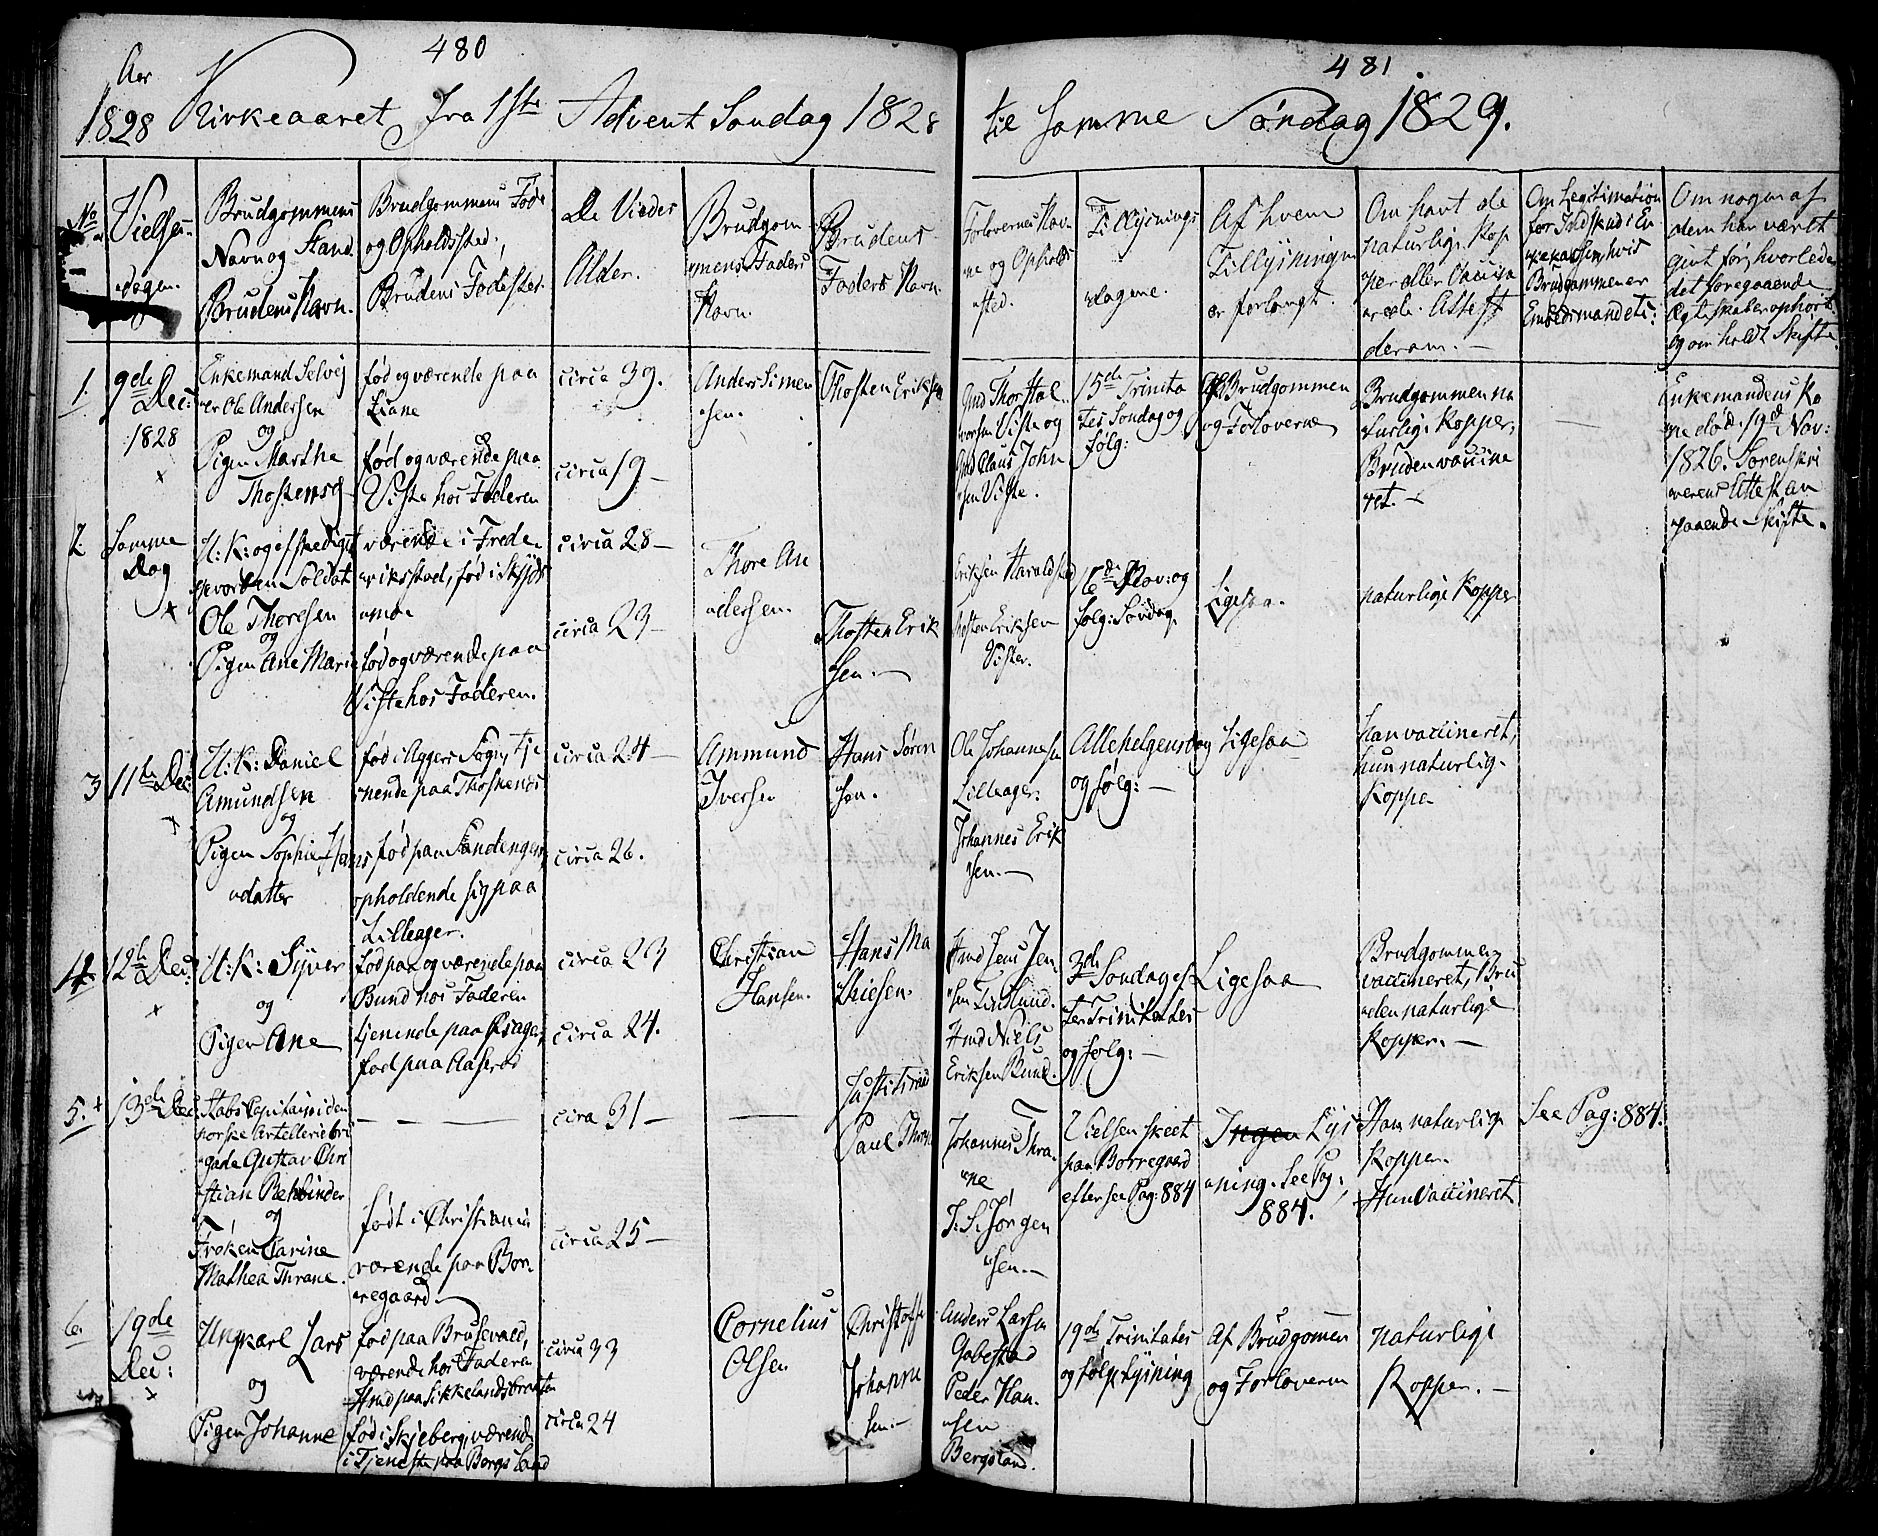 480
Aar
1828 Kirkeaaret fra 1ste Advent Søndag 1828
481.
til samme Søndag 1829.
No
Vielses-
dagen.
Brudgommens
Navn og Stand.
Brudens Navn.
Brudgommens Føde
og Opholdssted;
Brudens Fødested.
De Viedes
Alder.
Brudgom
mens Faders
Navn.
Brudens
Faders Navn.
Forlovernes Nav-
ne og Opholds
sted.
Tillysnings
dagene.
Af hvem
Tillysningen
er forlangt.
Om havt de
naturlige Kop
per eller Vaccina
Attest
derom.
Om Legitimation
for Indskud i En
kekassen, hvis
Brudgommen er
Embedsmand etc:
Om nogen af
dem har været
givt før, hvorledes
det foregaaende
Ægteskab er ophørt
og om holdt Skifte.
1.
9de
Dec:
1828
Enkemand Selvej
er Ole Andersen
og
Pigen Marthe
Thostensd
fød og værende paa
Liane
fød og værende paa
Viste hos Faderen
circa 39.
circa 19
Anders Simen
sen.
Thosten Eriksen
Gmd Thor Hal-
vorsen Viste og
Gmd Claus John
sen Viste.
15de Trinita
tes Søndag og
følg:
Af Brudgommen
og Forloverne
Brudgommen na
turlige Kopper,
Bruden vaccine
ret.
Enkemandens Ko
ne død 19de Nov:
1826. Sorenskri
verens Attest an
gaaende Skifte.
2
Samme
Dag
U: K: og afskediget
gevorben Soldat
Ole Thoresen
og
Pigen Ane Marie
værende i Frede-
riksstad, fød i Skjøds
moe
fød og værende paa
Viste hos Faderen.
circa 28
circa 23
Thore An
dersen.
Thosten Erik
sen.
Eriksen Haraldstad
Thosten Eriksen
Viste.
16de Nov: og
følg: Søndag.
Ligesaa.
naturlige Kopper
3
11te Dec:
U: K: Daniel
Amundsen
og
Pigen Sophie Hans
datter
fød i Aggers Sogn, tje
nende paa Thoskends
fød paa Sandengen,
opholdende sig paa
Lilleager.
circa 24
circa 26.
Ammund
Iversen
Hans Søren
sen.
Ole Johannesen
Lilleager.
Johannes Erik
sen.
Allehelgensdag
og følg:
Ligesaa
han vaccineret,
hun naturlig.
Kopper
4
12te Dec:
U: K: Syver
og
Pigen Ane
fød paa og værende paa
Bund hos Faderen
tjenende paa Prager,
fød paa Aaserød
circa 23
circa 24.
Christian
Hansen.
Hans Ma
thiesen.
Hmd Jens Jen
sen
Hmd Niels
Eriksen Bund.
3de Søndag ef-
ter Trinitates
og følg:
Ligesaa
Brudgommen
vaccineret, Bru
den naturlige
Kopper.
5.
13de Dec:
Stabs Capitain i den
norske Artelleriebri
gade Gustav Chri
stian Rehbinder
og
Frøken Carine
Mathea Thrane.
født i Christiania
værende paa Bor-
regaard.
circa 31
circa 25
Justitsraad
Paul Thrane
Johannes Thra-
ne
J. S. Jørgen
sen.
Vielsen skeet
paa Borregaard
efter see Pag: 884
Ingen Lys
ning. See Pag:
884.
Han naturlige
Kopper.
Hun Vaccineret
See Pag: 884.
6.
19de
Dec:
Ungkarl Lars
og
Pigen Johanne
fød paa Brusevald,
værende hos Faderen
Hmd paa Sikkelandsbraaten
fød i Skjeberg, værende
i Tjeneste paa Borgs Land
circa 33
circa 24
Cornelius
Olsen
Christoffer
Johanne
sen.
Anders Larsen
Gabestad
Peder Han-
sen
Bergsland.
19de Trinitates
og følg Lysning
Af Brudgommen
og Forloveren
naturlige
Kopper.